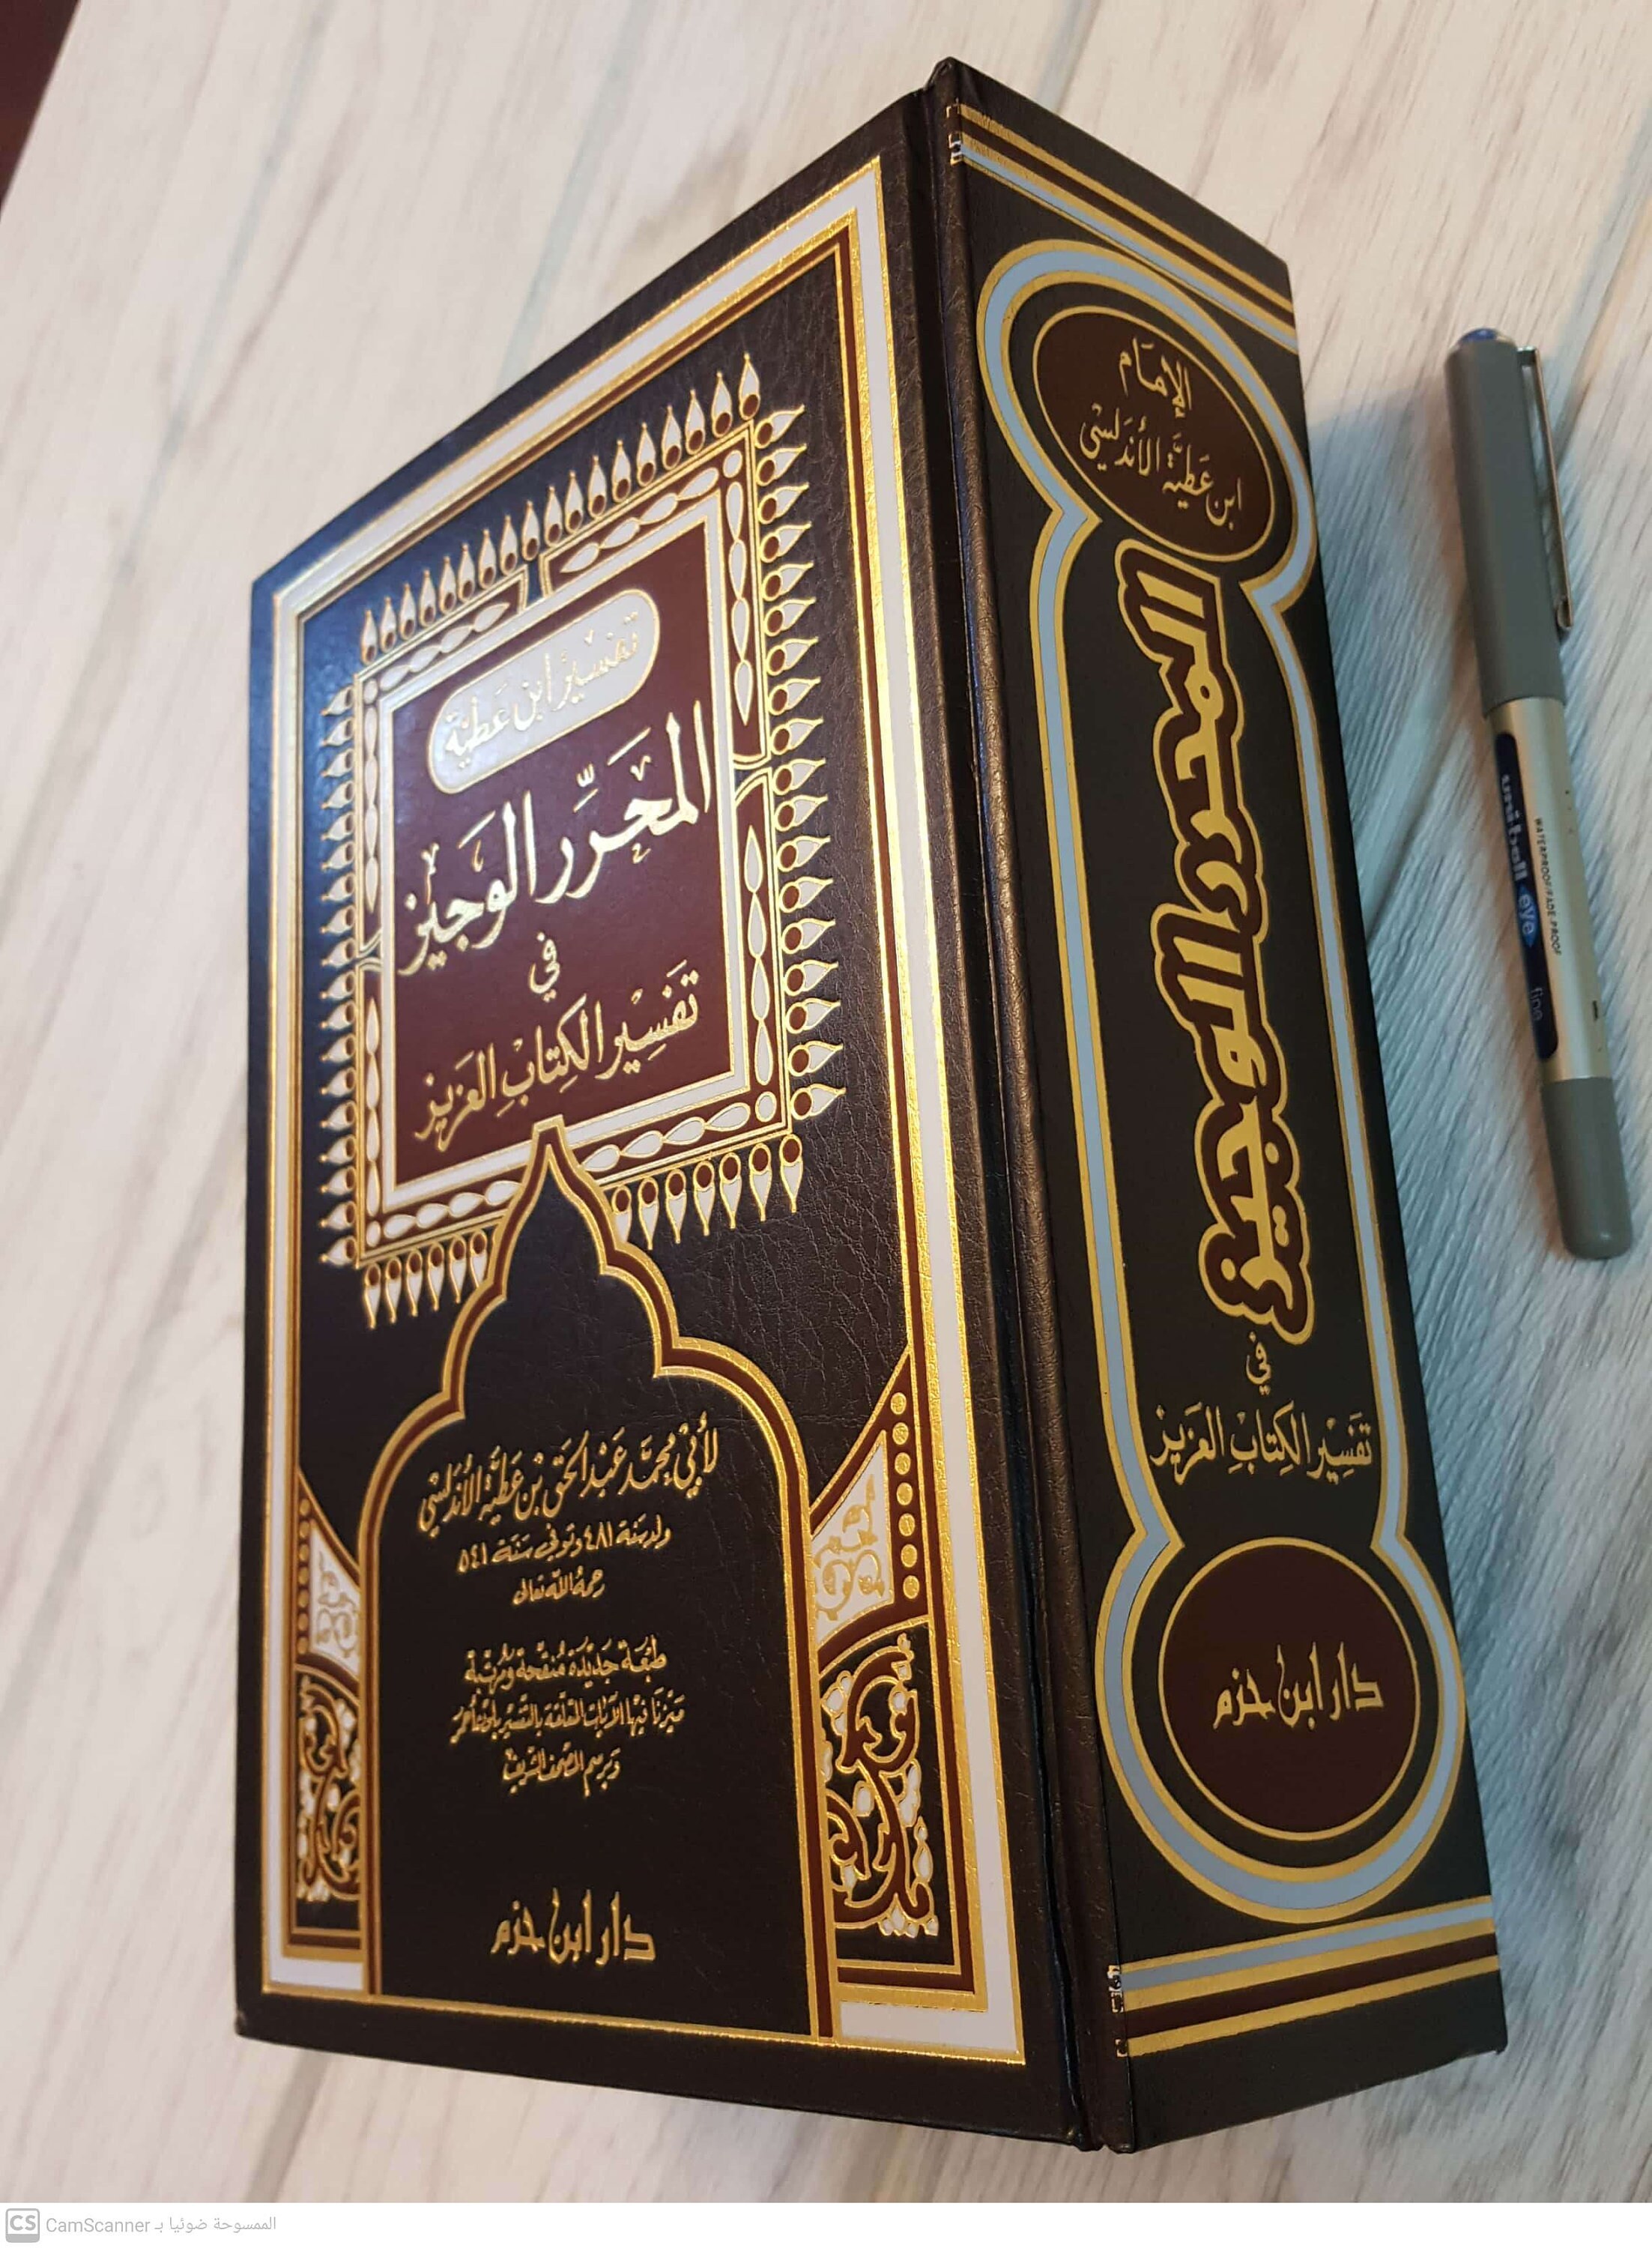 تفسير ابن عطية
المحرر الوجيز
في
تفسير الكتاب العزيز
لأبي محمد عبد الحق بن عطية الأندلسي
ولد سنة ٤٨١ وتوفي سنة ٥٤١
رحمه الله تعالى
طبعة جديدة منقحة ومرتبة
ميزنا فيها الآيات المتعلقة بالتفسير بلون أحمر
وبرسم المصحف الشريف
دار ابن حزم
الإمام
ابن عطية الأندلسي
المحرر الوجيز
في
تفسير الكتاب العزيز
دار ابن حزم
uniball eye
WATERPROOF/FADE-PROOF
fine
CS CamScanner الممسوحة ضوئيا بـ